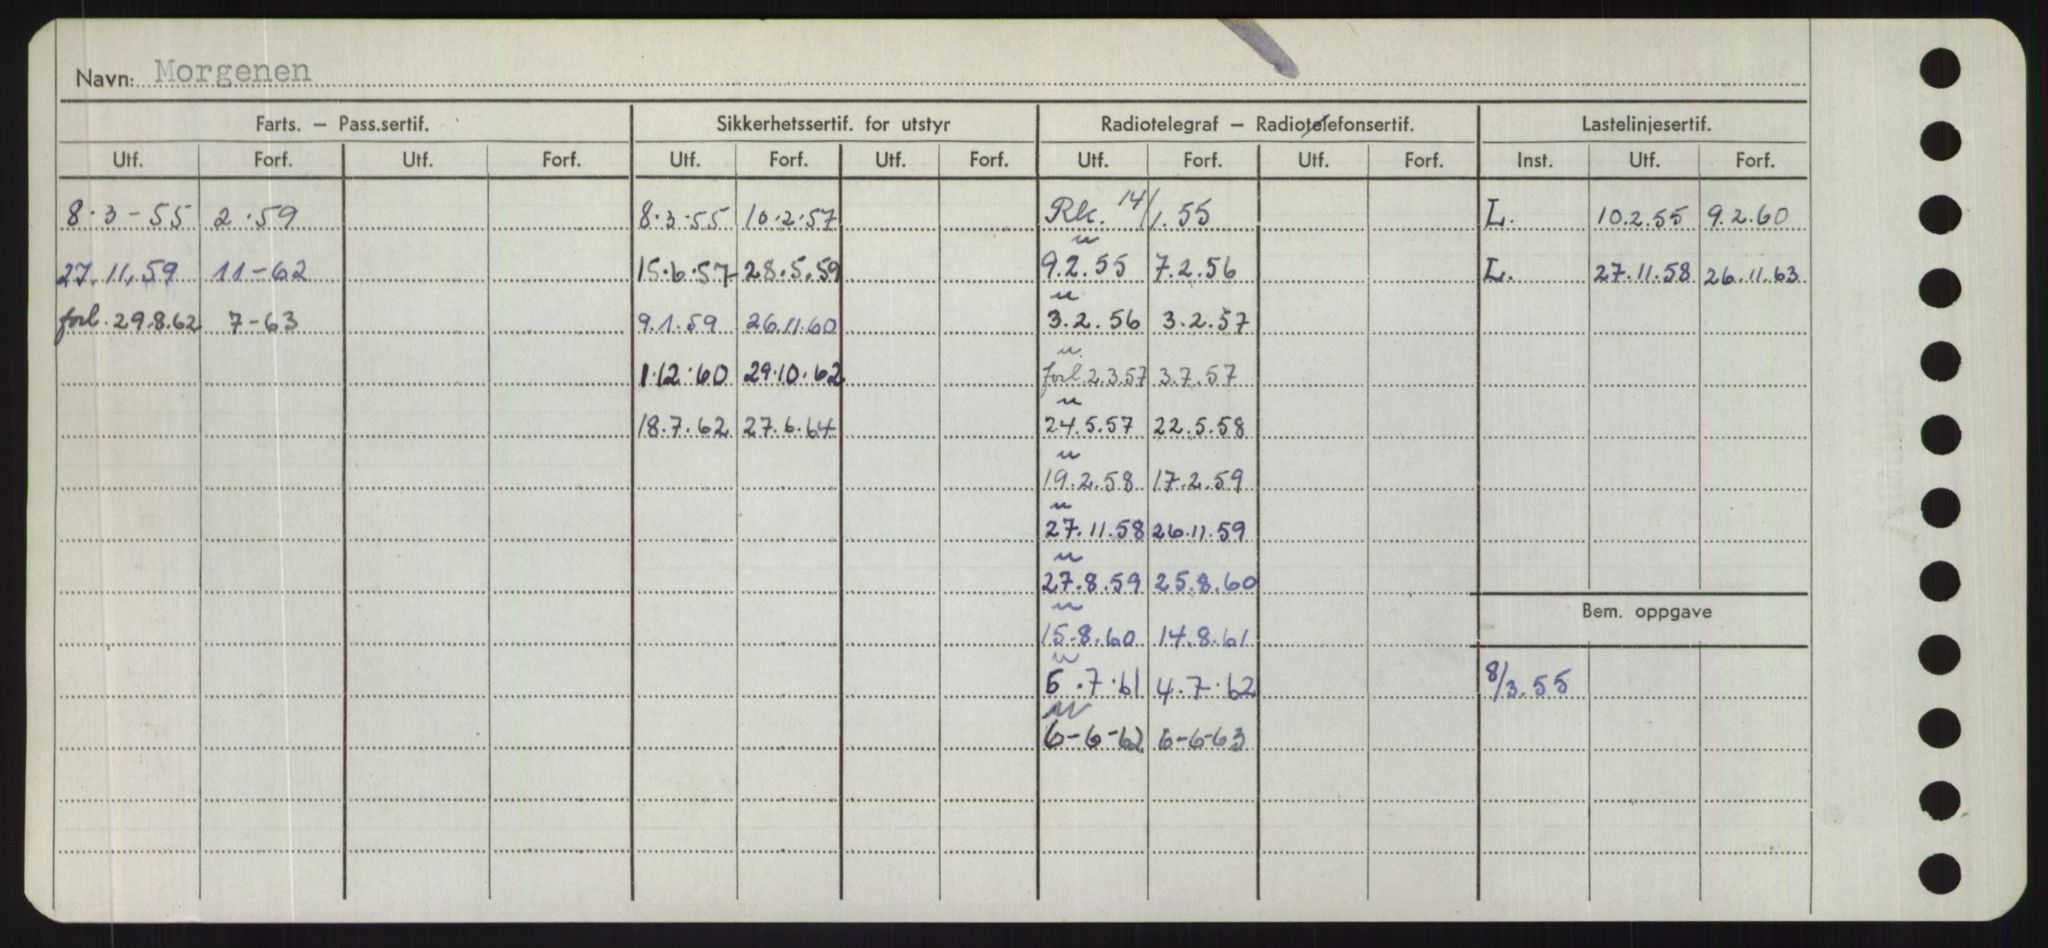 Navn: Morgenen
Farts. – Pass.sertif. Sikkerhetssertif. for utstyr Radiotelegraf – Radiotelefonsertif. Lastelinjesertif.
Utf. Forf. Utf. Forf. Utf. Forf. Utf. Forf. Utf. Forf. Utf. Forf. Inst. Utf. Forf.
8.3-55 2.59 8.3.55 10.2.57 Rk. 14/1.55 L. 10.2.55 9.2.60
u
27.11.59 11-62 15.6.57 28.5.59 9.2.55 7.2.56 L. 27.11.58 26.11.63
u
forl. 29.8.62 7-63 9.1.59 26.11.60 3.2.56 3.2.57
u
1.12.60 29.10.62 forl 2.3.57 3.7.57
u
18.7.62 27.6.64 24.5.57 22.5.58
u
19.2.58 17.2.59
u
27.11.58 26.11.59
u
27.8.59 25.8.60
u
Bem. oppgave
15.8.60 14.8.61
u
5.7.61 4.7.62 8/3.55
u
6-6-62 6-6-63